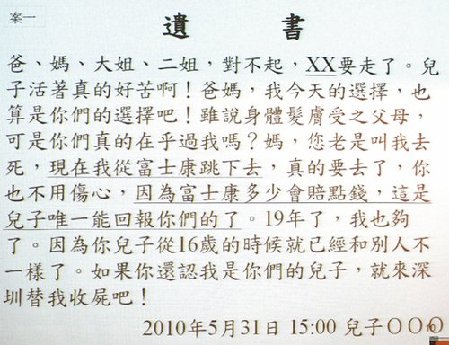 案一
遺書
爸、媽、大姐、二姐，對不起，XX要走了。兒
子活著真的好苦啊！爸媽，我今天的選擇，也
算是你們的選擇吧！雖說身體髮膚受之父母，
可是你們真的在乎過我嗎？媽，您老是叫我去
死，現在我從富士康跳下去，真的要去了，你
也不用傷心，因為富士康多少會賠點錢，這是
兒子唯一能回報你們的了。19年了，我也夠
了。因為你兒子從16歲的時候就已經和別人不
一樣了。如果你還認我是你們的兒子，就來深
圳替我收屍吧！
2010年5月31日 15:00 兒子〇〇〇